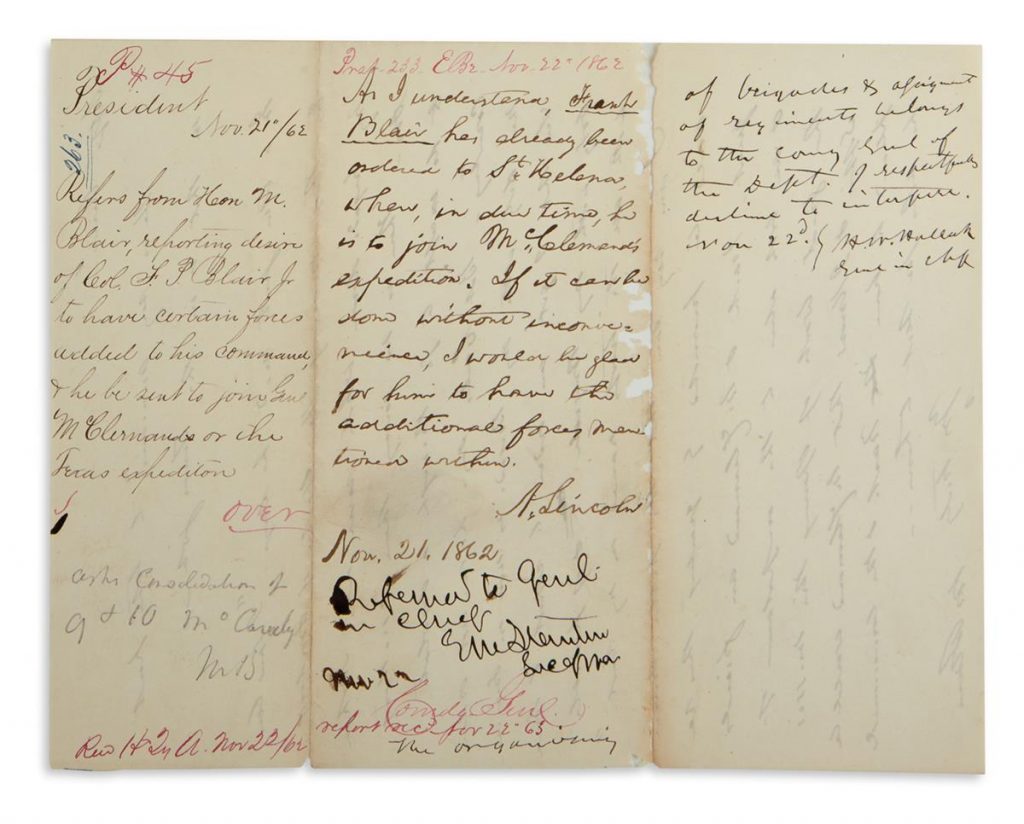 P 45
President
Nov. 21"/62
263.
Refers from Hon M.
Blair, reporting desire
of Col. F. P. Blair Jr
to have certain forces
added to his command,
& he be sent to join Genl
McClernands or the
Texas expediton
over
asks Consolidation of
9 & 10 Mo Cavalry
MB
Rec H Qr A. Nov 22/62
Nov. 22" 1862
As I understand, Frank
Blair has already been
ordered to St. Helena,
where, in due time, he
is to join McClernand's
expedition. If it can be
done without inconve-
nience, I would be glad
for him to have the
additional forces men-
tioned within.
A. Lincoln
Nov. 21. 1862
Referred to Genl
in chief
EM Stanton
Sec of War
Nov 22
Comdg Genl.
report
the organising
of brigades & assignment
of regiments belongs
to the comg Genl of
the Dept. I respectfully
decline to interfere.
Nov 22d. H.W. Halleck
Genl in Chf